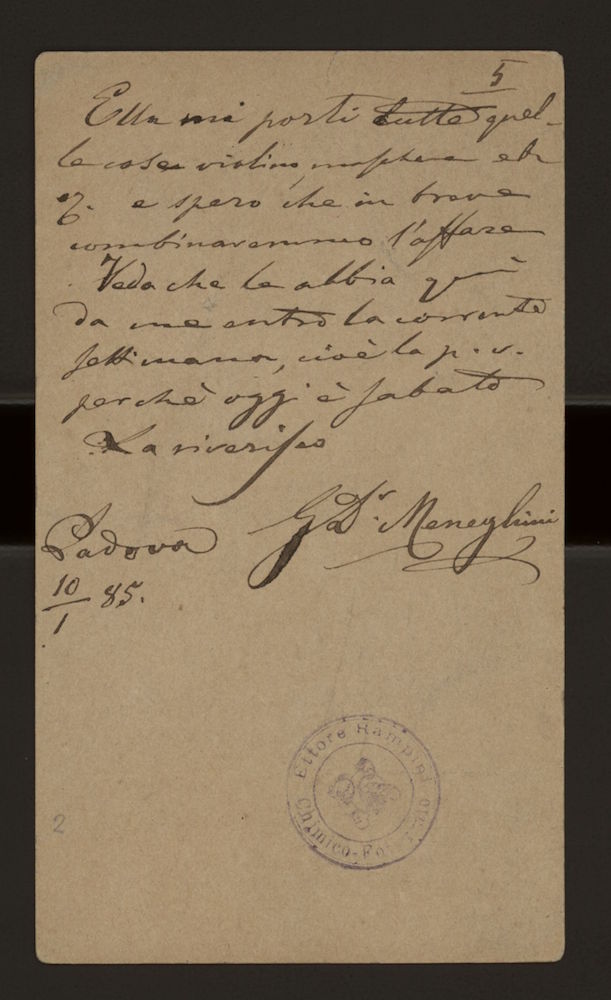 5
Ella mi porti tutte quel-
le cose violino, maschera ed
e spero che in breve
combinaremmo l'affare
Veda che le abbia quì
da me entro la corrente
settimana, cioè la p. v.
perchè oggi è sabato
La riverisco
G Dr. Meneghini
Padova
10/1 85.
Ettore Rampini
Chimico-
2